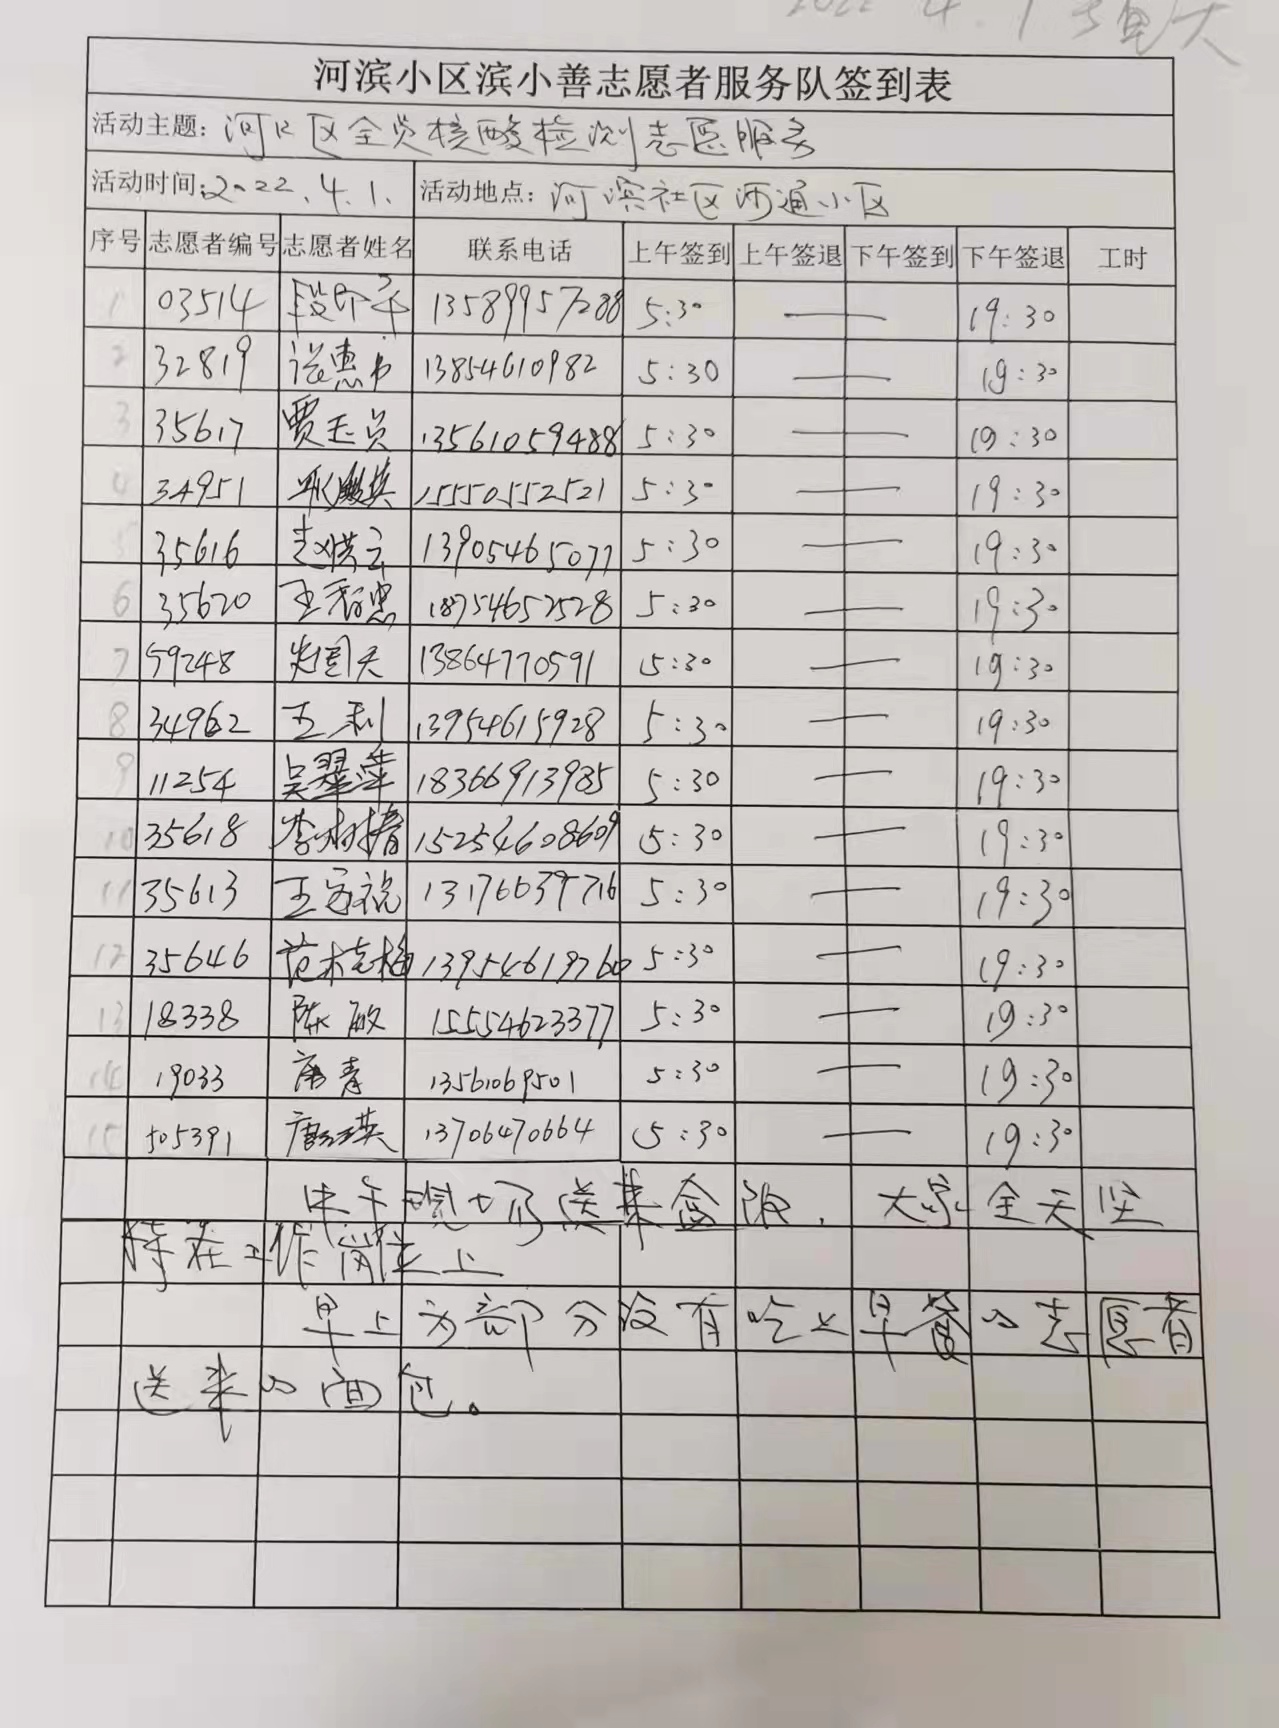 2022 4.1
河滨小区滨小善志愿者服务队签到表
活动主题: 河口区全员核酸检测志愿服务
活动时间: 2022.4.1. 活动地点: 河滨社区河通小区
序号 志愿者编号 志愿者姓名 联系电话 上午签到 上午签退 下午签到 下午签退 工时
1 03514 13589957288 5:30 — 19:30
2 32819 13854610982 5:30 — 19:30
3 35617 贾玉贞 13561059488 5:30 — 19:30
4 34951 15550552521 5:30 — 19:30
5 35616 赵洪云 13905465077 5:30 — 19:30
6 35620 王秀忠 18754652528 5:30 — 19:30
7 59248 13864770591 5:30 — 19:30
8 34962 王利 13954615928 5:30 — 19:30
9 11254 吴翠萍 18366913985 5:30 — 19:30
10 35618 李树梅 15254608609 5:30 — 19:30
11 35613 王 13176639716 5:30 — 19:30
12 35646 范 13954619760 5:30 — 19:30
13 18338 陈敏 15554623377 5:30 — 19:30
14 19033 唐青 13561069501 5:30 — 19:30
15 505391 唐 瑛 13706470664 5:30 — 19:30
中午 送来盒饭. 大家全天坚
持在工作岗位上
早上为部分没有吃上早餐的志愿者
送来的面包。